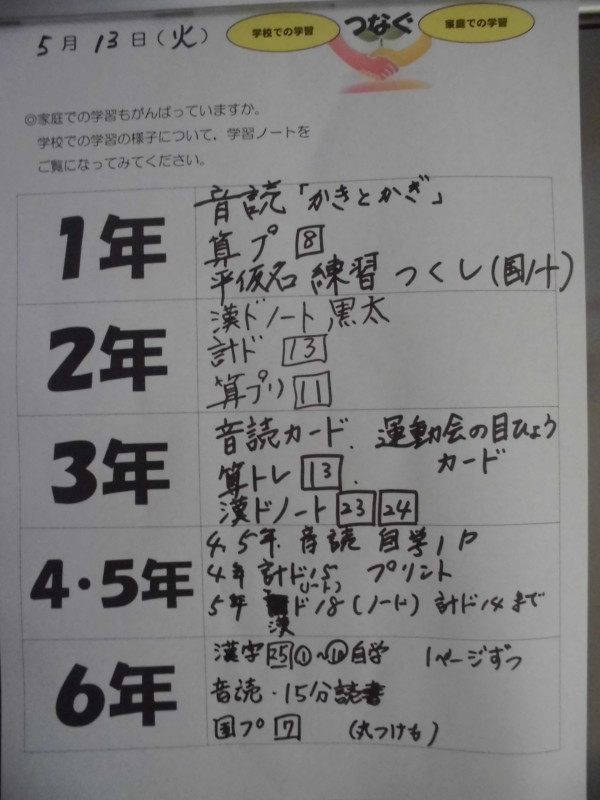 5月13日(火)
学校での学習 つなぐ 家庭での学習
◎家庭での学習もがんばっていますか。
学校での学習の様子について，学習ノートを
ご覧になってみてください。
1年
音読「かきとかぎ」
算プ 8
平仮名 練習 つくし(国ノート)
2年
漢ドノート 黒太
計ド 13
算プリ 11
3年
音読カード、運動会の目ひょう
カード
算トレ 13、
漢ドノート 23 24
4・5年
4.5年 音読 自学1P
4年 計ド15 プリント
(ノート)
5年 ド18(ノード) 計ド14まで
漢
6年
漢字25①~⑩自学 1ページずつ
音読・15分読書
国プ 7 (丸つけも)